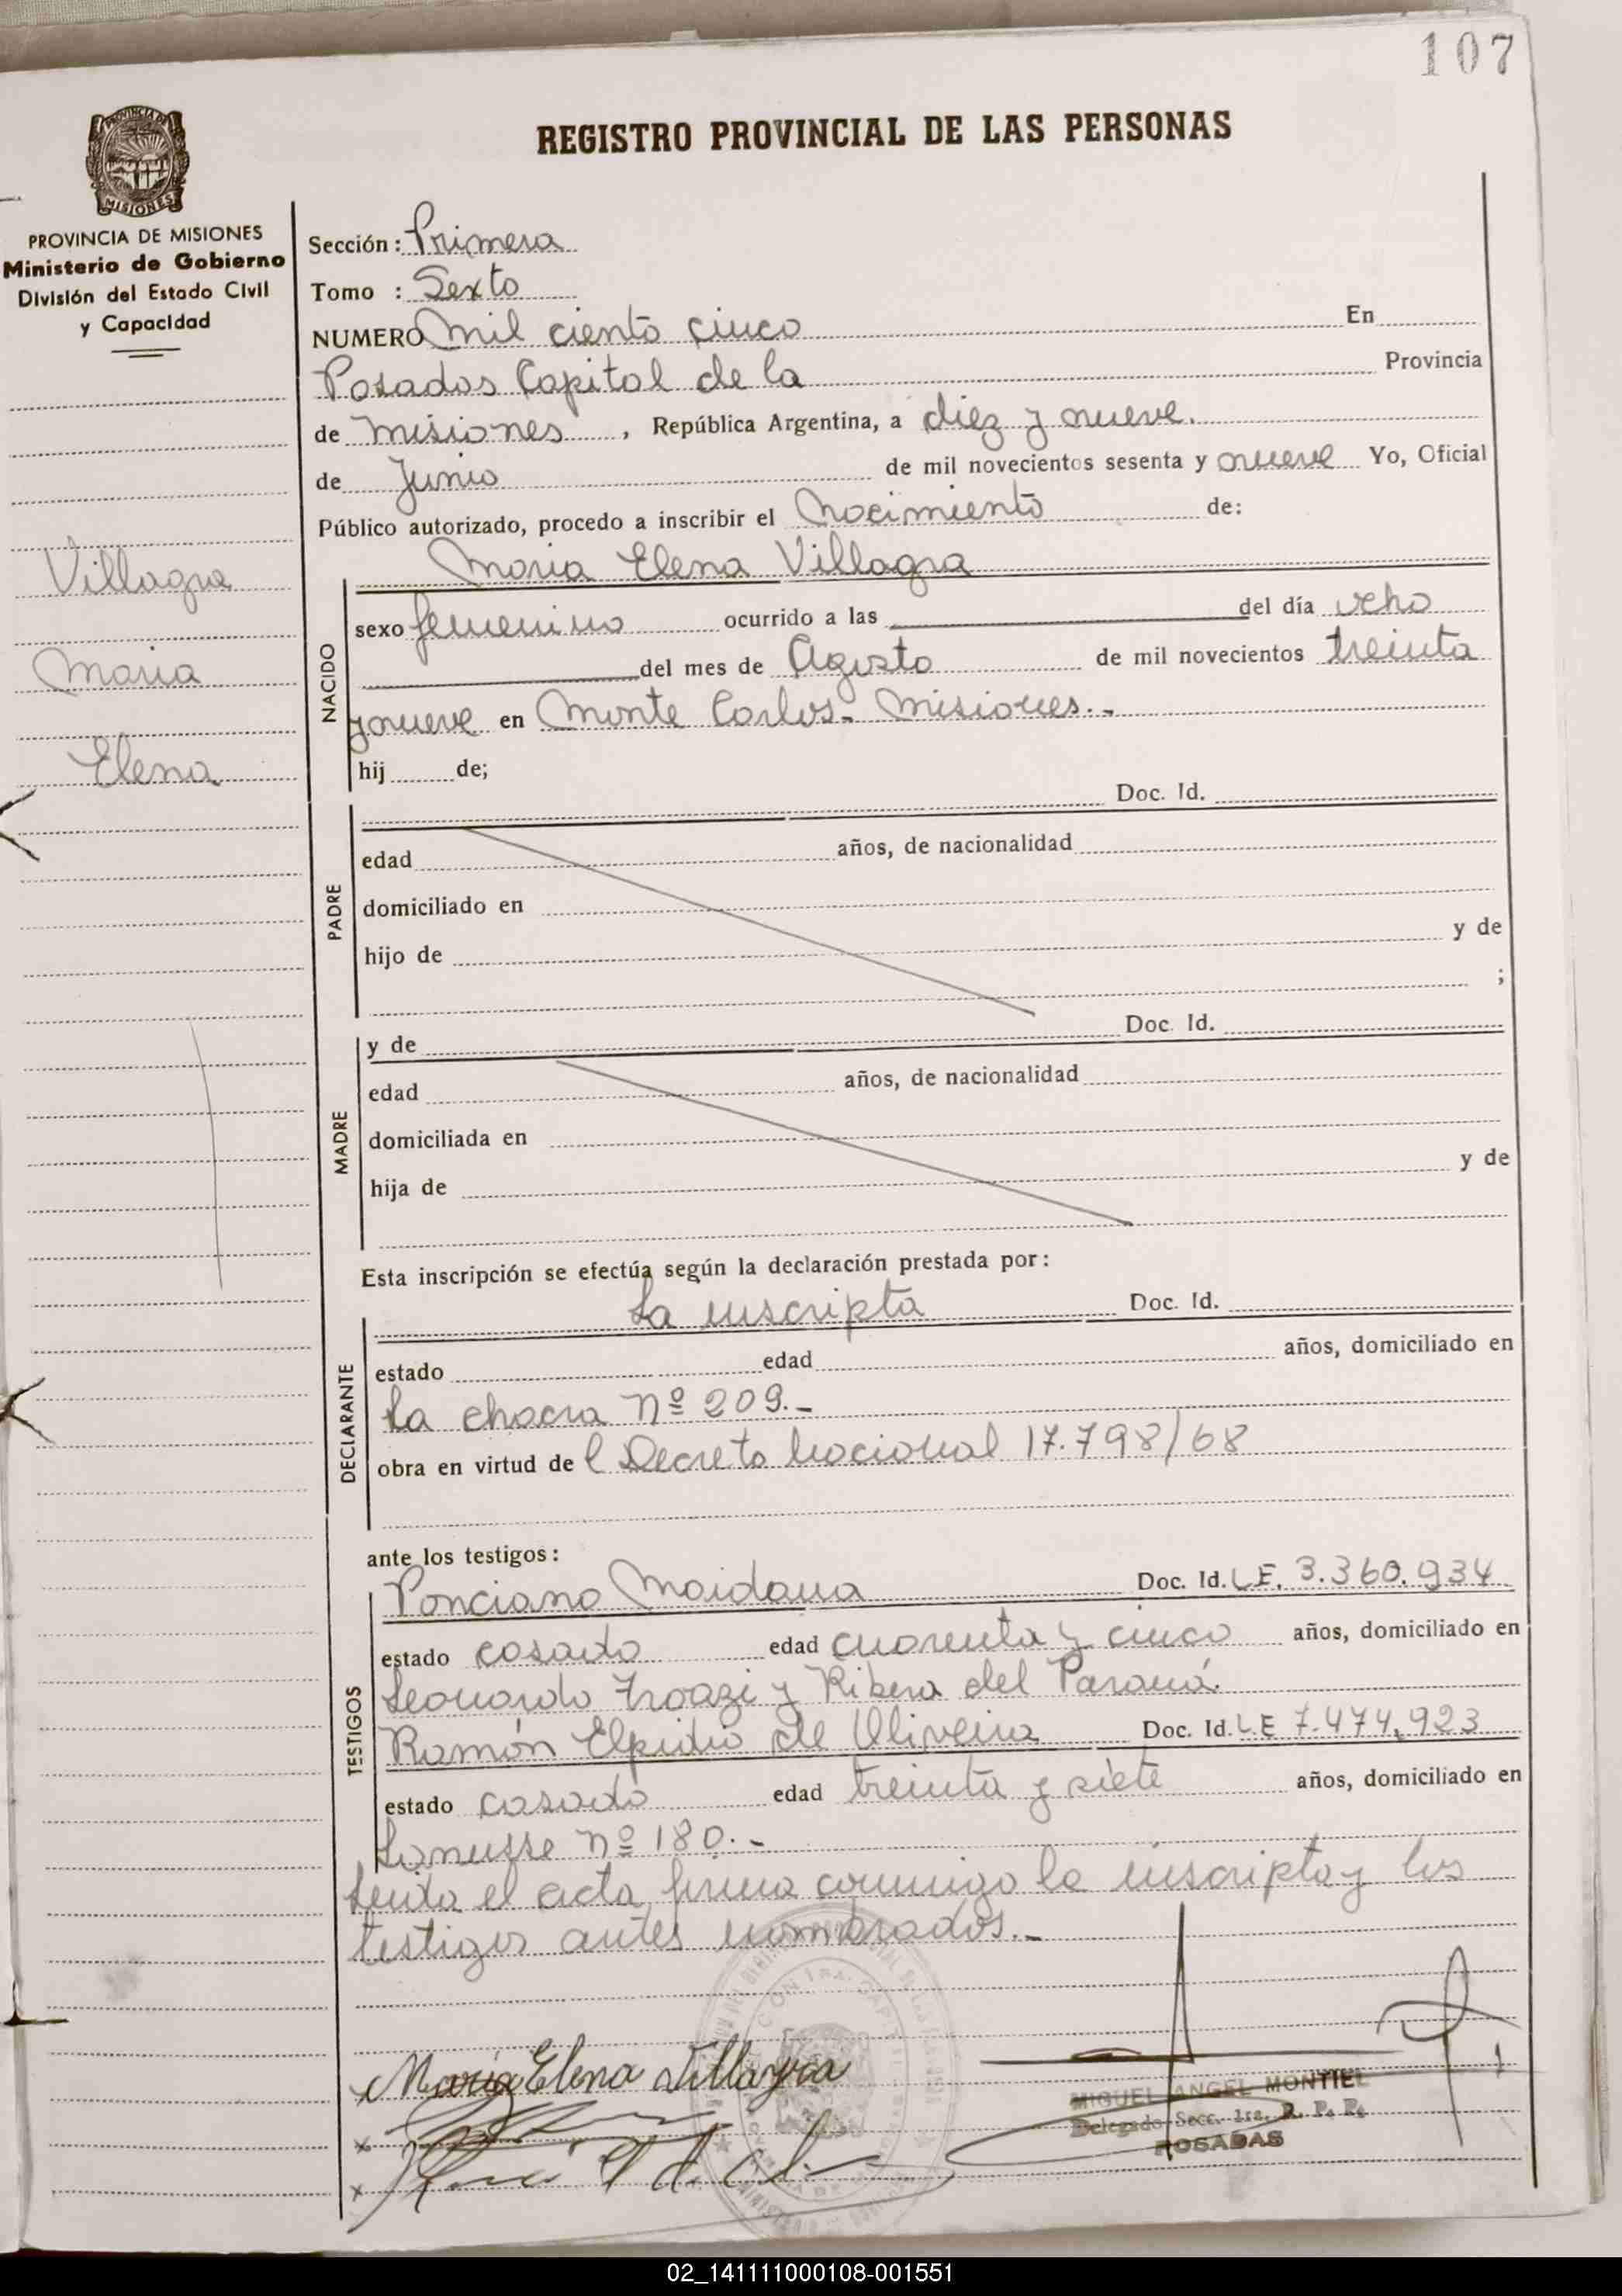 107
REGISTRO PROVINCIAL DE LAS PERSONAS
MISIONES
PROVINCIA DE MISIONES
Ministerio de Gobierno
División del Estado Civil
y Capacidad
Villagra
Maria
Elena
Sección: Primera
Tomo : Sexto
NUMERO Mil ciento cinco En
Posadas Capital de la Provincia
de Misiones, República Argentina, a diez y nueve.
de Junio de mil novecientos sesenta y nueve Yo, Oficial
Público autorizado, procedo a inscribir el Nacimiento de:
Maria Elena Villagra
NACIDO
sexo femenino ocurrido a las del día ocho
del mes de Agosto de mil novecientos treinta
y nueve en Monte Carlos- Misiones.-
hij de;
Doc. Id.
PADRE
edad años, de nacionalidad
domiciliado en
hijo de y de
;
y de Doc. Id.
MADRE
edad años, de nacionalidad
domiciliada en
hija de y de
Esta inscripción se efectúa según la declaración prestada por:
La inscripta Doc. Id.
DECLARANTE
estado edad años, domiciliado en
La chacra nº 209.-
obra en virtud de l Decreto Nacional 17.798/68
ante los testigos:
Ponciano Maidana Doc. Id. L.E. 3.360.934
TESTIGOS
estado casado edad cuarenta y cinco años, domiciliado en
Leonardo Troazi y Ribera del Paraná.
Ramón Elpidio de Oliveira Doc. Id. L.E 7.474.923
estado casado edad treinta y siete años, domiciliado en
Lanusse nº 180.-
Leida el acta firma conmigo la inscripta y los
testigos antes nombrados.-
Maria Elena Villagra
MIGUEL ANGEL MONTIEL
Delegado Secc. 1ra. R. P. P.
POSADAS
02_141111000108-001551